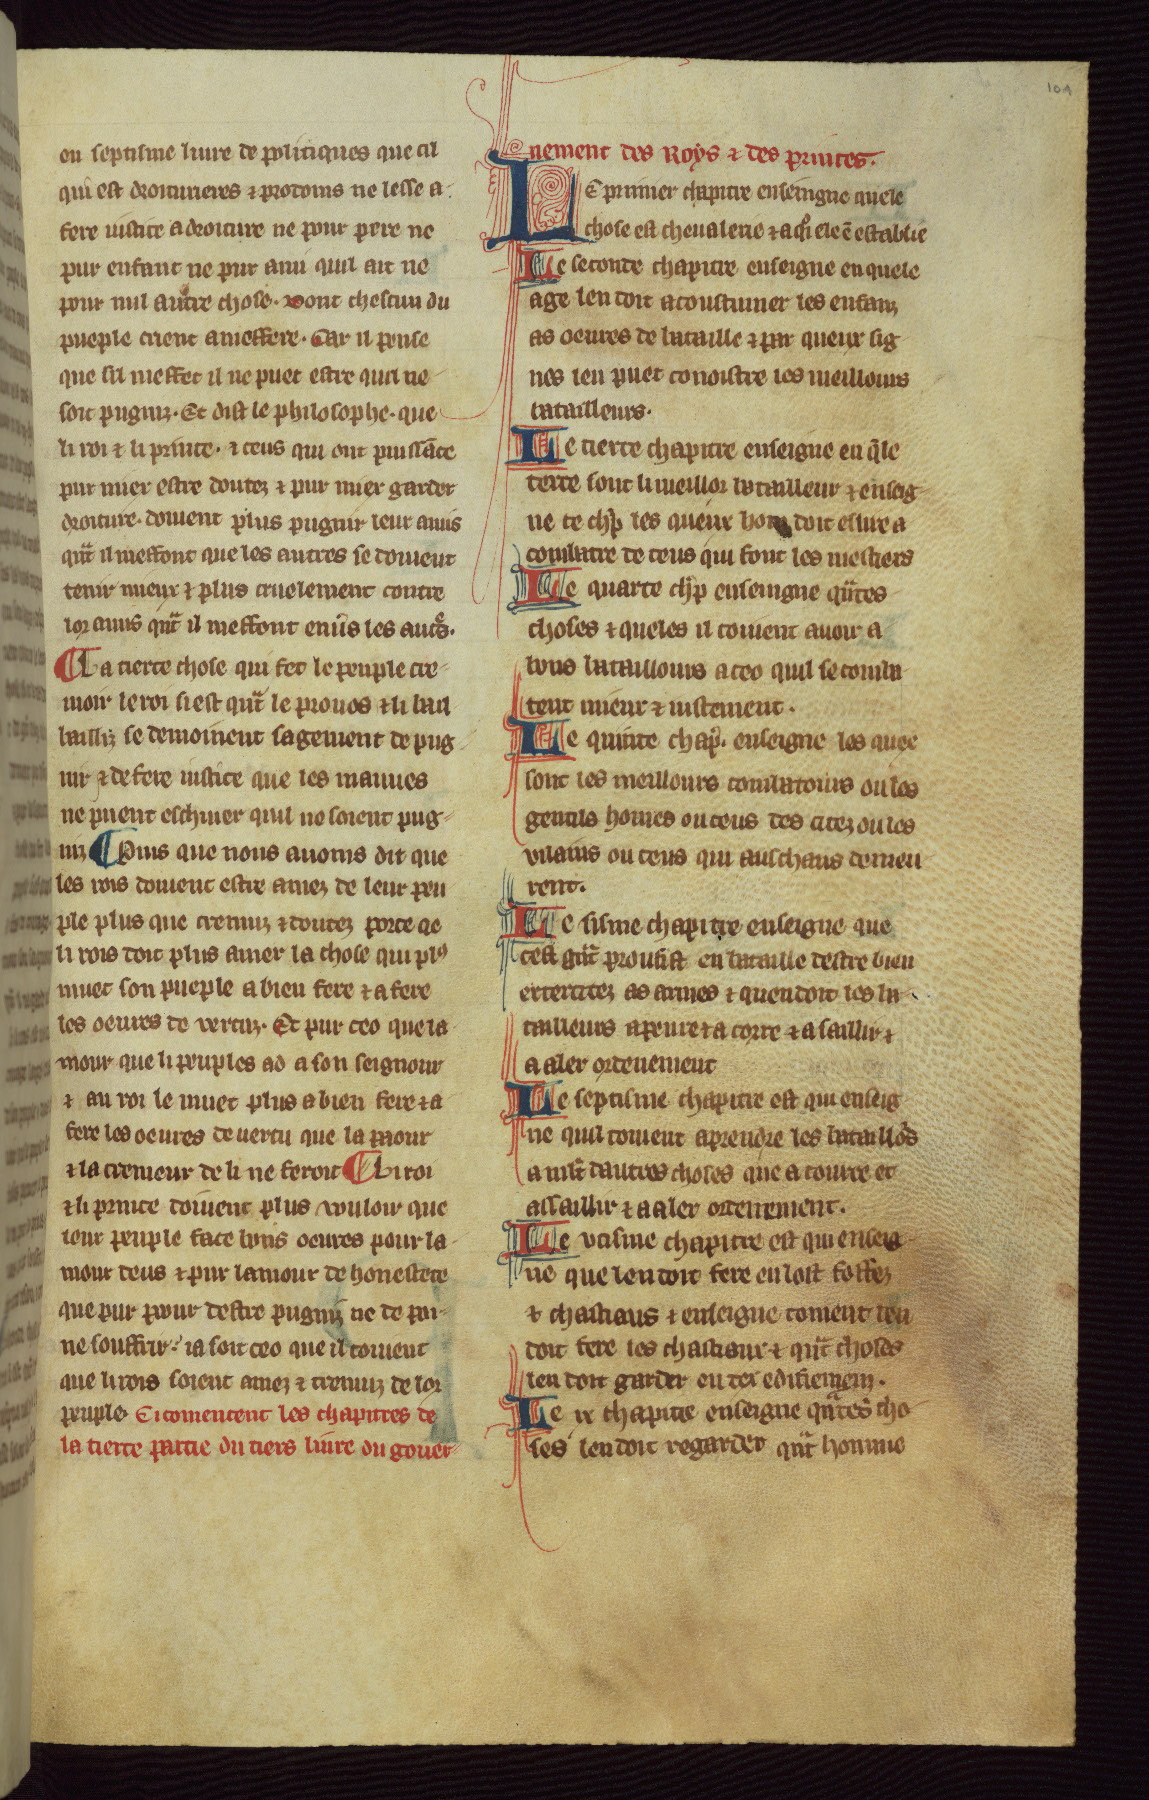 101
en septisme liure de politiques que cil
qui est droitureres ⁊ prodoms ne lesse a
fere iustice a droiture ne pour pere ne
pur enfant ne pur ami quil ait ne
pour nul autre chose. Dont chescun du
pueple crient a meffere. Car il pense
que sil meffet il ne puet estre quil ne
soit pugniz. Et dist le philosophe. que
li roi ⁊ li prince. ⁊ ceus qui ont puissāce
pur mier estre doutez ⁊ pur mier garder
droiture. doiuent plus pugnir leur amis
qn̄t il meffont que les autres se doiuent
tenir mieux ⁊ plus cruelement contre
lor amis qn̄t il meffont enūs les autͤs.
La tierce chose qui fet le peuple cre-
moir le roi si est qn̄t le prouos ⁊ li bail
bailliz se demoinent sagement de pug
nir ⁊ de fere iustice que les mauues
ne puent eschiuer quil ne soient pug-
niz Puis que nous auoms dit que
les rois doiuent estre amez de leur peu
ple plus que cremuz ⁊ doutez porce qe
li rois doit plus amer la chose qui plꝰ
muet son pueple a bien fere ⁊ a fere
les oeures de vertuz. Et pur ceo que la-
mour que li peuples ad a son seignour
⁊ au roi le muet plus a bien fere ⁊ a
fere les oeures de vertu que la paour
⁊ la cremeur de li ne feroit Li roi
⁊ li prince doiuent plus vouloir que
leur peuple face bons oeures pour la-
mour deus ⁊ pur lamour de honestete
que pur paour destre pugniz ne de pai-
ne souffrir. ia soit ceo que il couient
que li rois soient amez ⁊ cremuz de lor
peuple. Ci comencent les chapitres de
la tierce partie du tiers liure du gouer-
nement des Roys ⁊ des princes.
Le primier chapitre enseingne quele
chose est cheualerie ⁊ a qͥ ele ē establie
Le seconde chapitre enseigne en quele
age len doit acoustumer les enfanz
as oeures de bataille ⁊ par queux sig
nes len puet conoistre les meillours
batailleurs.
Le tierce chapitre enseigne en q̄le
terre sont li meillor batailleur ⁊ enseig-
ne ce chp̄ les queux hom doit eslire a
combatre de ceus qui font les mestiers
Le quarte chp̄ enseingne qūtes
choses ⁊ queles il couient auoir a
bons bataillours a ceo quil se comba-
tent mieux ⁊ iustement.
Le quinte chap̄. enseigne les quex
sont les meillours combatours ou les
gentils homes ou ceus des citez ou les
vilains ou ceus qui aus chans demeu
rent.
Le sisme chapitre enseigne que
cest gn̄t proufist en bataille destre bien
excercitez as armes ⁊ quen doit les ba-
tailleurs apenre ⁊ a corre ⁊ a saillir ⁊
a aler ordenement
Le septisme chapitre est qui enseig
ne quil couient aprendre les bataillōs
a mlt̄ dautres choses que a courre et
assaillir ⁊ a aler ordenement.
Le vtisme chapitre est qui enseig-
ne que len doit fere en lost fossez
⁊ chastiaus ⁊ enseigne coment len
doit fere les chastiaux ⁊ qn̄t choses
len doit garder en tex edifiemenz.
Le ix chapitre enseigne qn̄tes cho
ses len doit regarder qn̄t homme